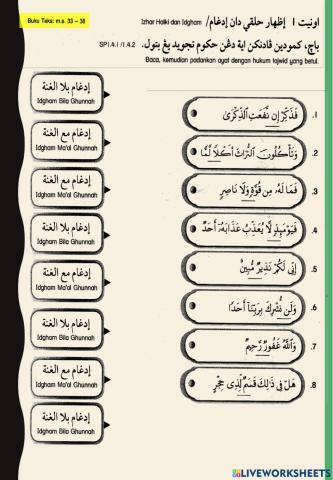 Buku Teks: m.s. 33 – 38
اونيت ١ إظهار حلقي دان إدغام/ Izhar Halki dan Idgham
باچ، كمودين ڤادنكن اية دڠن حكوم تجويد يڠ بتول.
SP1.4.1 /1.4.2
Baca, kemudian padankan ayat dengan hukum tajwid yang betul.
إدغام بلا الغنة
Idgham Bila Ghunnah
إدغام مع الغنة
Idgham Ma'al Ghunnah
إدغام بلا الغنة
Idgham Bila Ghunnah
إدغام مع الغنة
Idgham Ma'al Ghunnah
إدغام بلا الغنة
Idgham Bila Ghunnah
إدغام مع الغنة
Idgham Ma'al Ghunnah
إدغام بلا الغنة
Idgham Bila Ghunnah
إدغام مع الغنة
Idgham Ma'al Ghunnah
إدغام بلا الغنة
Idgham Bila Ghunnah
.1 فَذَكِّرْ إِن نَّفَعَتِ الذِّكْرَىٰ
.2 وَتَأْكُلُونَ التُّرَاثَ أَكْلًا لَّمًّا
.3 فَمَا لَهُ مِن قُوَّةٍ وَلَا نَاصِرٍ
.4 فَيَوْمَئِذٍ لَّا يُعَذِّبُ عَذَابَهُ أَحَدٌ
.5 إِنِّي لَكُمْ نَذِيرٌ مُّبِينٌ
.6 وَلَن نُّشْرِكَ بِرَبِّنَا أَحَدًا
.7 وَاللَّهُ غَفُورٌ رَّحِيمٌ
.8 هَلْ فِي ذَٰلِكَ قَسَمٌ لِّذِي حِجْرٍ
LIVEWORKSHEETS